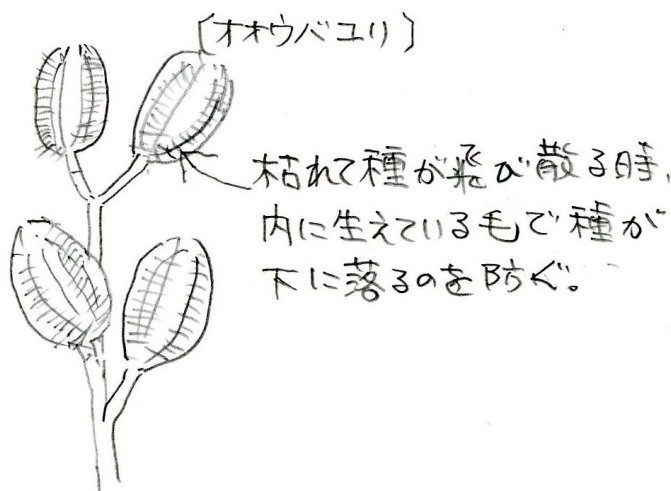 〔オオウバユリ〕
枯れて種が飛び散る時、
内に生えている毛で種が
下に落るのを防ぐ。